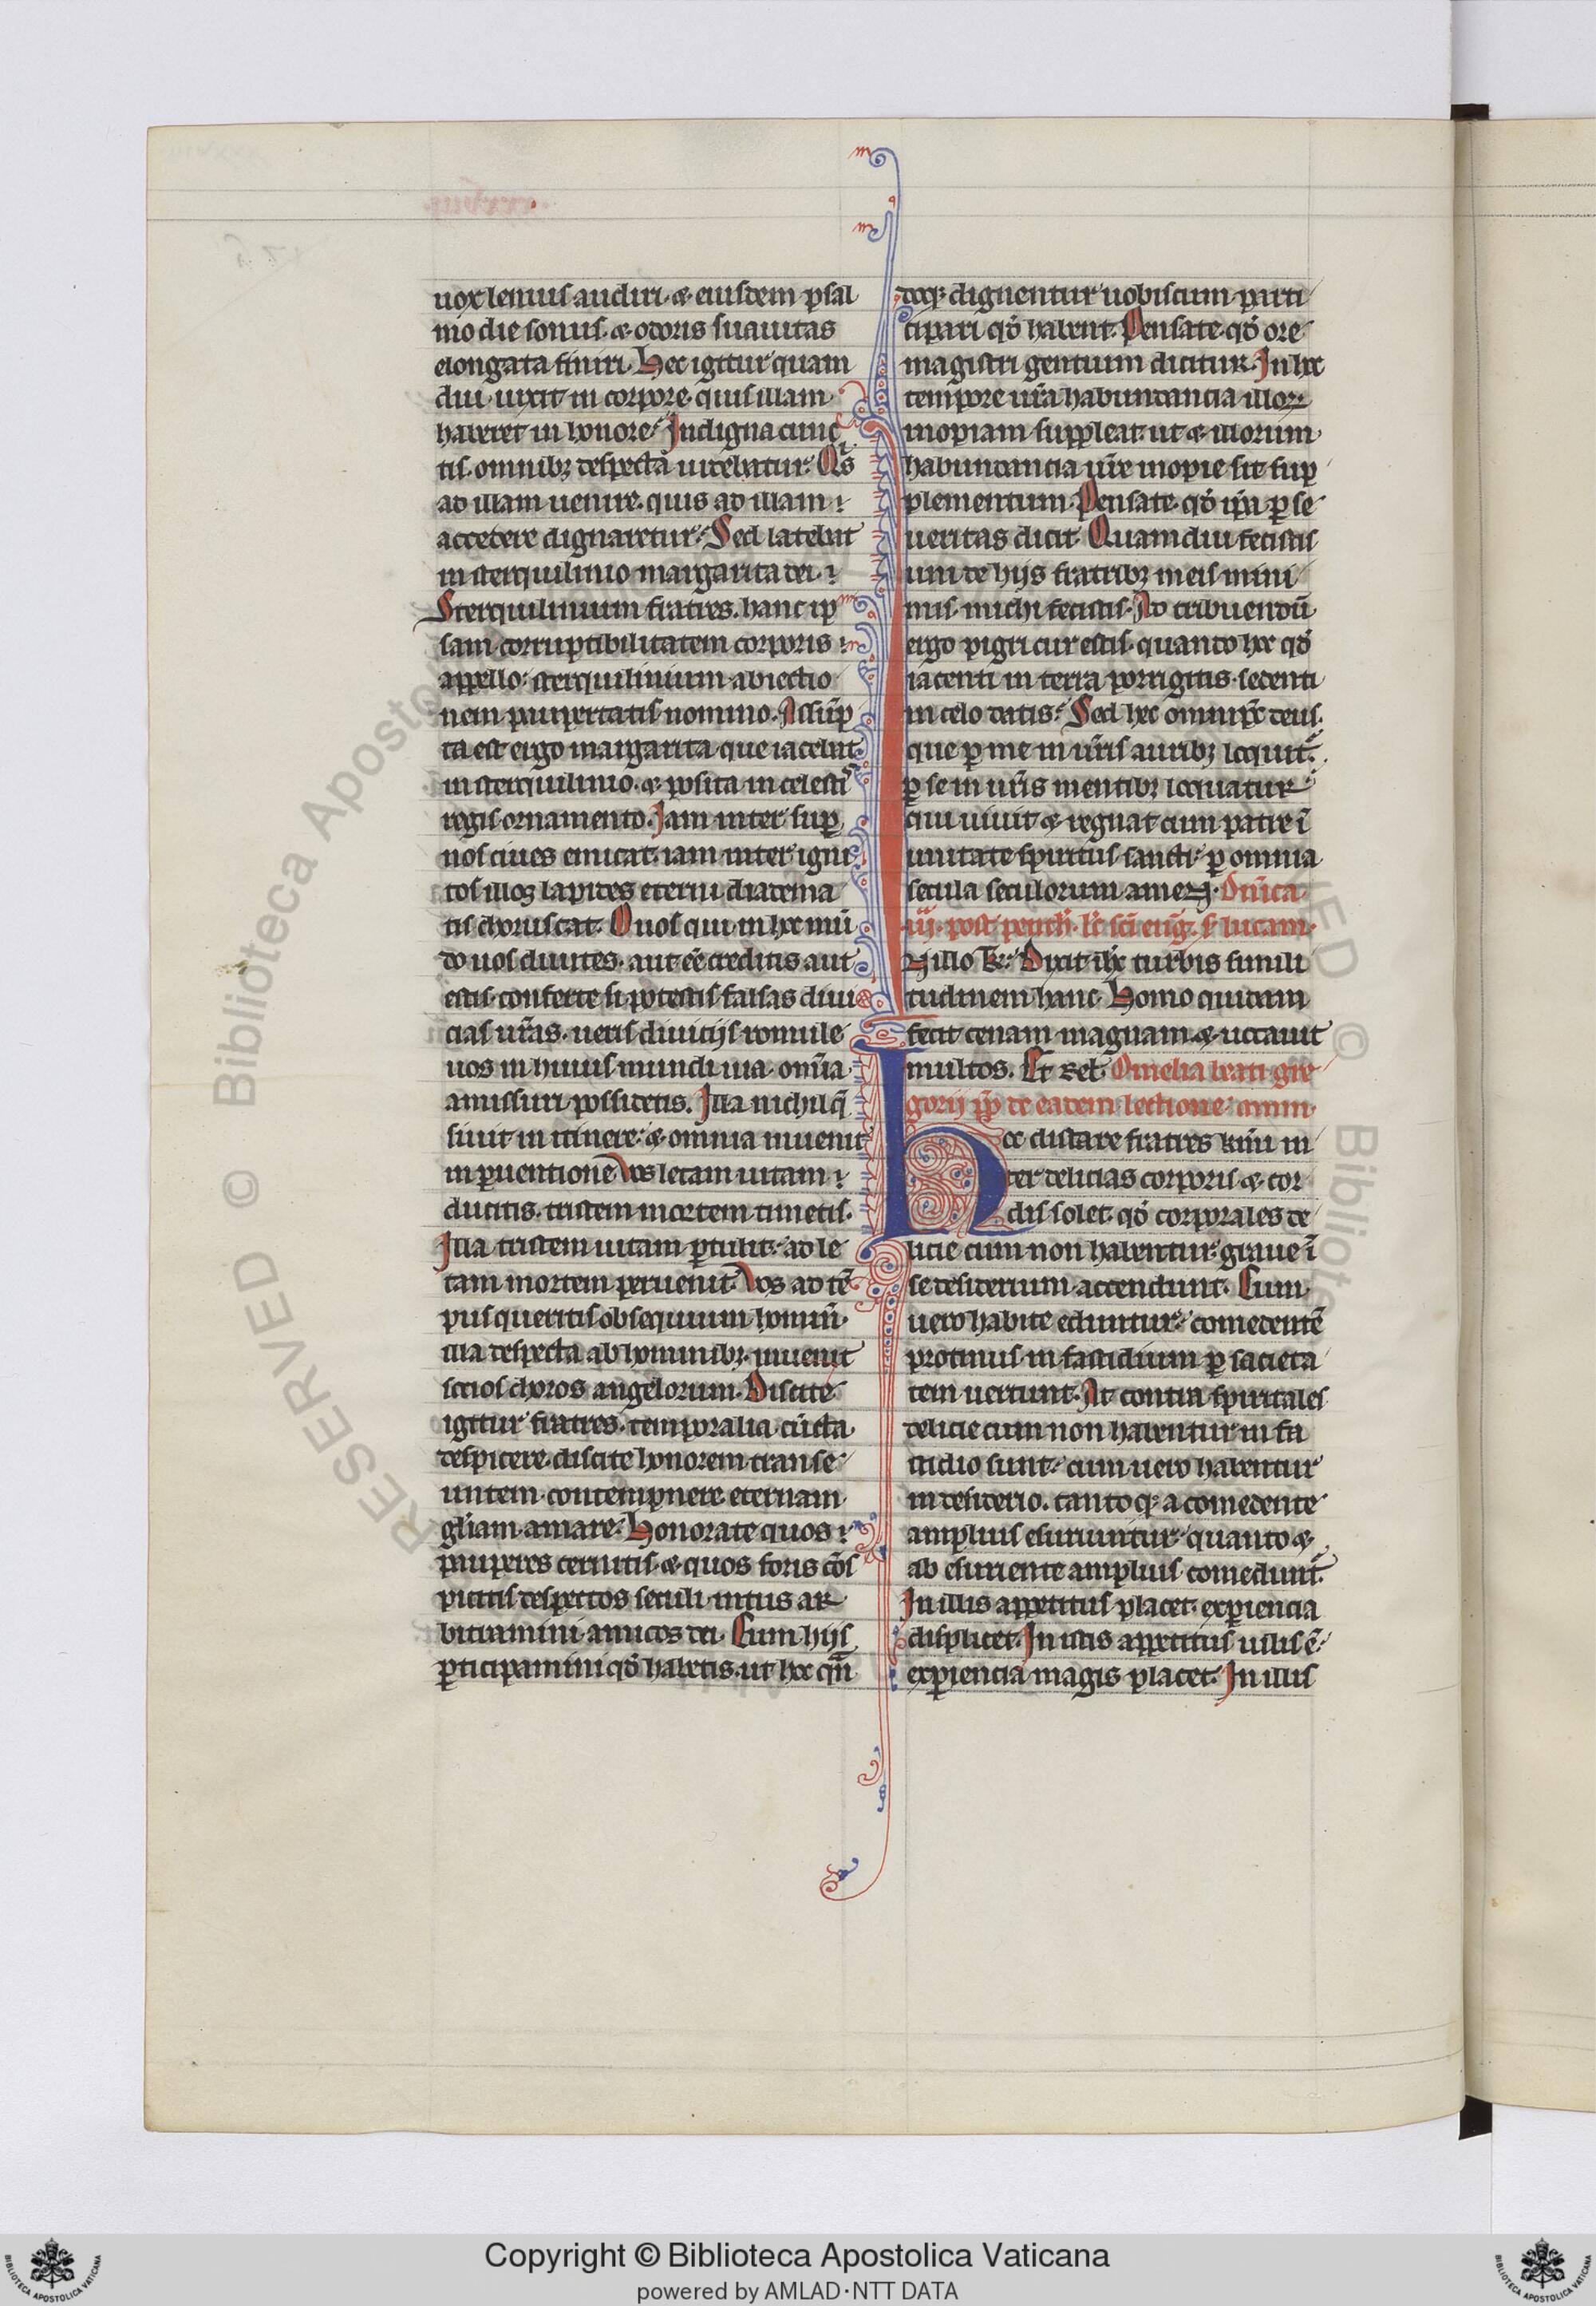 uox lenius audiri. ⁊ eiusdem psal
modie sonus. ⁊ odoris suauitas
elongata finiri. Hec igitur quam
diu uixit in corpore. quis illam
haberet in honore. Indigna cunc
tis. omnibꝫ despecta uidebatur. Qⁱs
ad illam uenire. quis ad illam
accedere dignaretur. Sed latebat
in sterquilinio margarita dei.
Sterquilinium fratres. hanc ip
sam corruptibilitatem corporis
appello. sterquilinium abiectio
nem paupertatis nomino. Assūp
ta est ergo margarita que iacebat
in sterquilinio. ⁊ posita in celestis
regis ornamento. Iam inter sup̱
nos ciues emicat. iam inter igni
tos illoꝫ lapides eterni diadema
tis choruscat. O uos qui in hoc mū
do uos diuites. aut eē creditis aut
estis. conferte si potestis falsas diui
cias ur̄as. ueris diuicijs romule
uos in huius mundi uia. omīa
amissuri possidetis. Illa nichil q̄
siuit in itinere. ⁊ omnia inuenit
in ꝑuentione. Vos letam uitam
ducitis. tristem mortem timetis.
Illa tristem uitam ꝑtulit. ad le
tam mortem peruenit. Vos ad tē
pus queritis obsequium hominū.
illa despecta ab hominibꝫ. inuenit
socios choros angelorum. Discite
igitur fratres. temporalia cūcta
despicere. discite honorem transe
untem contempnere. eternam
gl̄iam amare. Honorate quos
pauperes cernitis. ⁊ quos foris cōs
picitis despectos seculi. intus ar
bitramini amicos dei. Cum hijs
ꝑticipamini qd̄ habetis. ut hoc qn̄
doqꝫ dignentur uobiscum parti
cipari qd̄ habent. Pensate qd̄ ore
magistri gentium dicitur. In hoc
tempore ur̄a habundancia illoꝝ
inopiam suppleat. ut ⁊ illorum
habundancia ur̄e inopie sit sup
plementum. Pensate qd̄ ip̄a ꝑ se
ueritas dicit. Quamdiu fecistis
uni de hijs fratribꝫ meis mini
mis. michi fecistis. Ad tribuendū
ergo pigri cur estis. quando hoc qd̄
iacenti in terra porrigitis. sedenti
in celo datis. Sed hec omnip̄c deus.
que ꝑ me in ur̄is auribꝫ loquit᷑.
ꝑ se in ur̄is mentibꝫ loquatur
qui uiuit ⁊ regnat cum patre ī
unitate spiritus sancti. ꝑ omnia
secula seculorum amen. Dn̄ica
.iij. post penth̄. lc̄ sc̄i eūg. s̄ lucam.
In illo t̄. Dixit ih̄c turbis simili
tudinem hanc. Homo quidam
fecit cenam magnam. ⁊ uocauit
multos. Et rel. Omelia beati gre
gorij pp̄ de eadem lectione.
Hoc distare fratres kmī in
ter delicias corporis ⁊ cor
dis solet. qd̄ corporales de
licie cum non habentur. graue ī
se desiderium accendunt. Cum
uero habite eduntur. comedentē
protinus in fastidium ꝑ sacieta
tem uertunt. At contra spiritales
delicie cum non habentur in fa
stidio sunt. cum uero habentur
in desiderio. tantoqꝫ a comedente
amplius esuriuntur. quanto ⁊
ab esuriente amplius comedunt᷑.
In illis appetitus placet. exꝑiencia
displicet. In istis appetitus uilis ē.
exꝑiencia magis placet. In illis
Copyright © Biblioteca Apostolica Vaticana
powered by AMLAD·NTT DATA
RESERVED © Biblioteca Apostolica
BIBLIOTECA APOSTOLICA VATICANA
BIBLIOTECA APOSTOLICA VATICANA